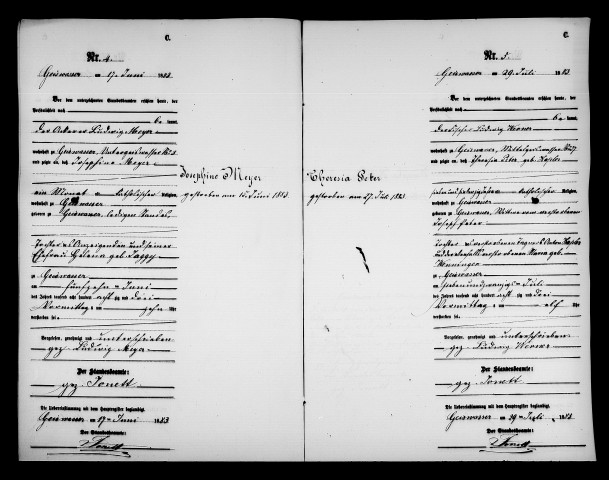 C.
Nr. 4.
Geiswasser am 17. Juni 1883
Vor dem unterzeichneten Standesbeamten erschien heute, der
Persönlichkeit nach
be kannt,
der Ackerer Ludwig Meyer
wohnhaft zu Geiswasser,
und zeigte an, daß Josephine Meyer
ein Monat alt, katholischer Religion,
wohnhaft zu Geiswasser
geboren zu Geiswasser, ledigen Standes
Tochter des Anzeigenden und seiner
Ehefrau Helena geb. Jaeggy
zu Geiswasser
am fünfzehn ten Juni
des Jahres tausend acht hundert acht zig und drei
Vormittags um zehn Uhr
verstorben sei.
Vorgelesen, genehmigt und unterschrieben
gez. Ludwig Meyer
Der Standesbeamte:
gez. Jonett
Die Uebereinstimmung mit dem Hauptregister beglaubigt
Geiswasser am 17ten Juni 1883
Der Standesbeamte:
Jonett
Josephine Meyer
gestorben am 15. Juni 1883.
Theresia Peter
gestorben am 27. Juli 1883.
C.
Nr. 5.
Geiswasser am 29. Juli 1883
Vor dem unterzeichneten Standesbeamten erschien heute, der
Persönlichkeit nach
be kannt,
der Fischer Ludwig Werner
wohnhaft zu Geiswasser,
und zeigte an, daß Theresia Peter, geb.
alt, katholischer Religion,
wohnhaft zu Geiswasser
geboren zu Geiswasser, Wittwe von verstorbenen
Joseph Peter
Tochter
und dessen verstorbenen Maria geb.
zu Geiswasser
am siebenundzwanzig ten Juli
des Jahres tausend acht hundert acht zig und drei
Vormittags um elf Uhr
verstorben sei.
Vorgelesen, genehmigt und unterschrieben
gez. Ludwig Werner
Der Standesbeamte:
gez. Jonett
Die Uebereinstimmung mit dem Hauptregister beglaubigt
Geiswasser am 29ten Juli 1883
Der Standesbeamte:
Jonett